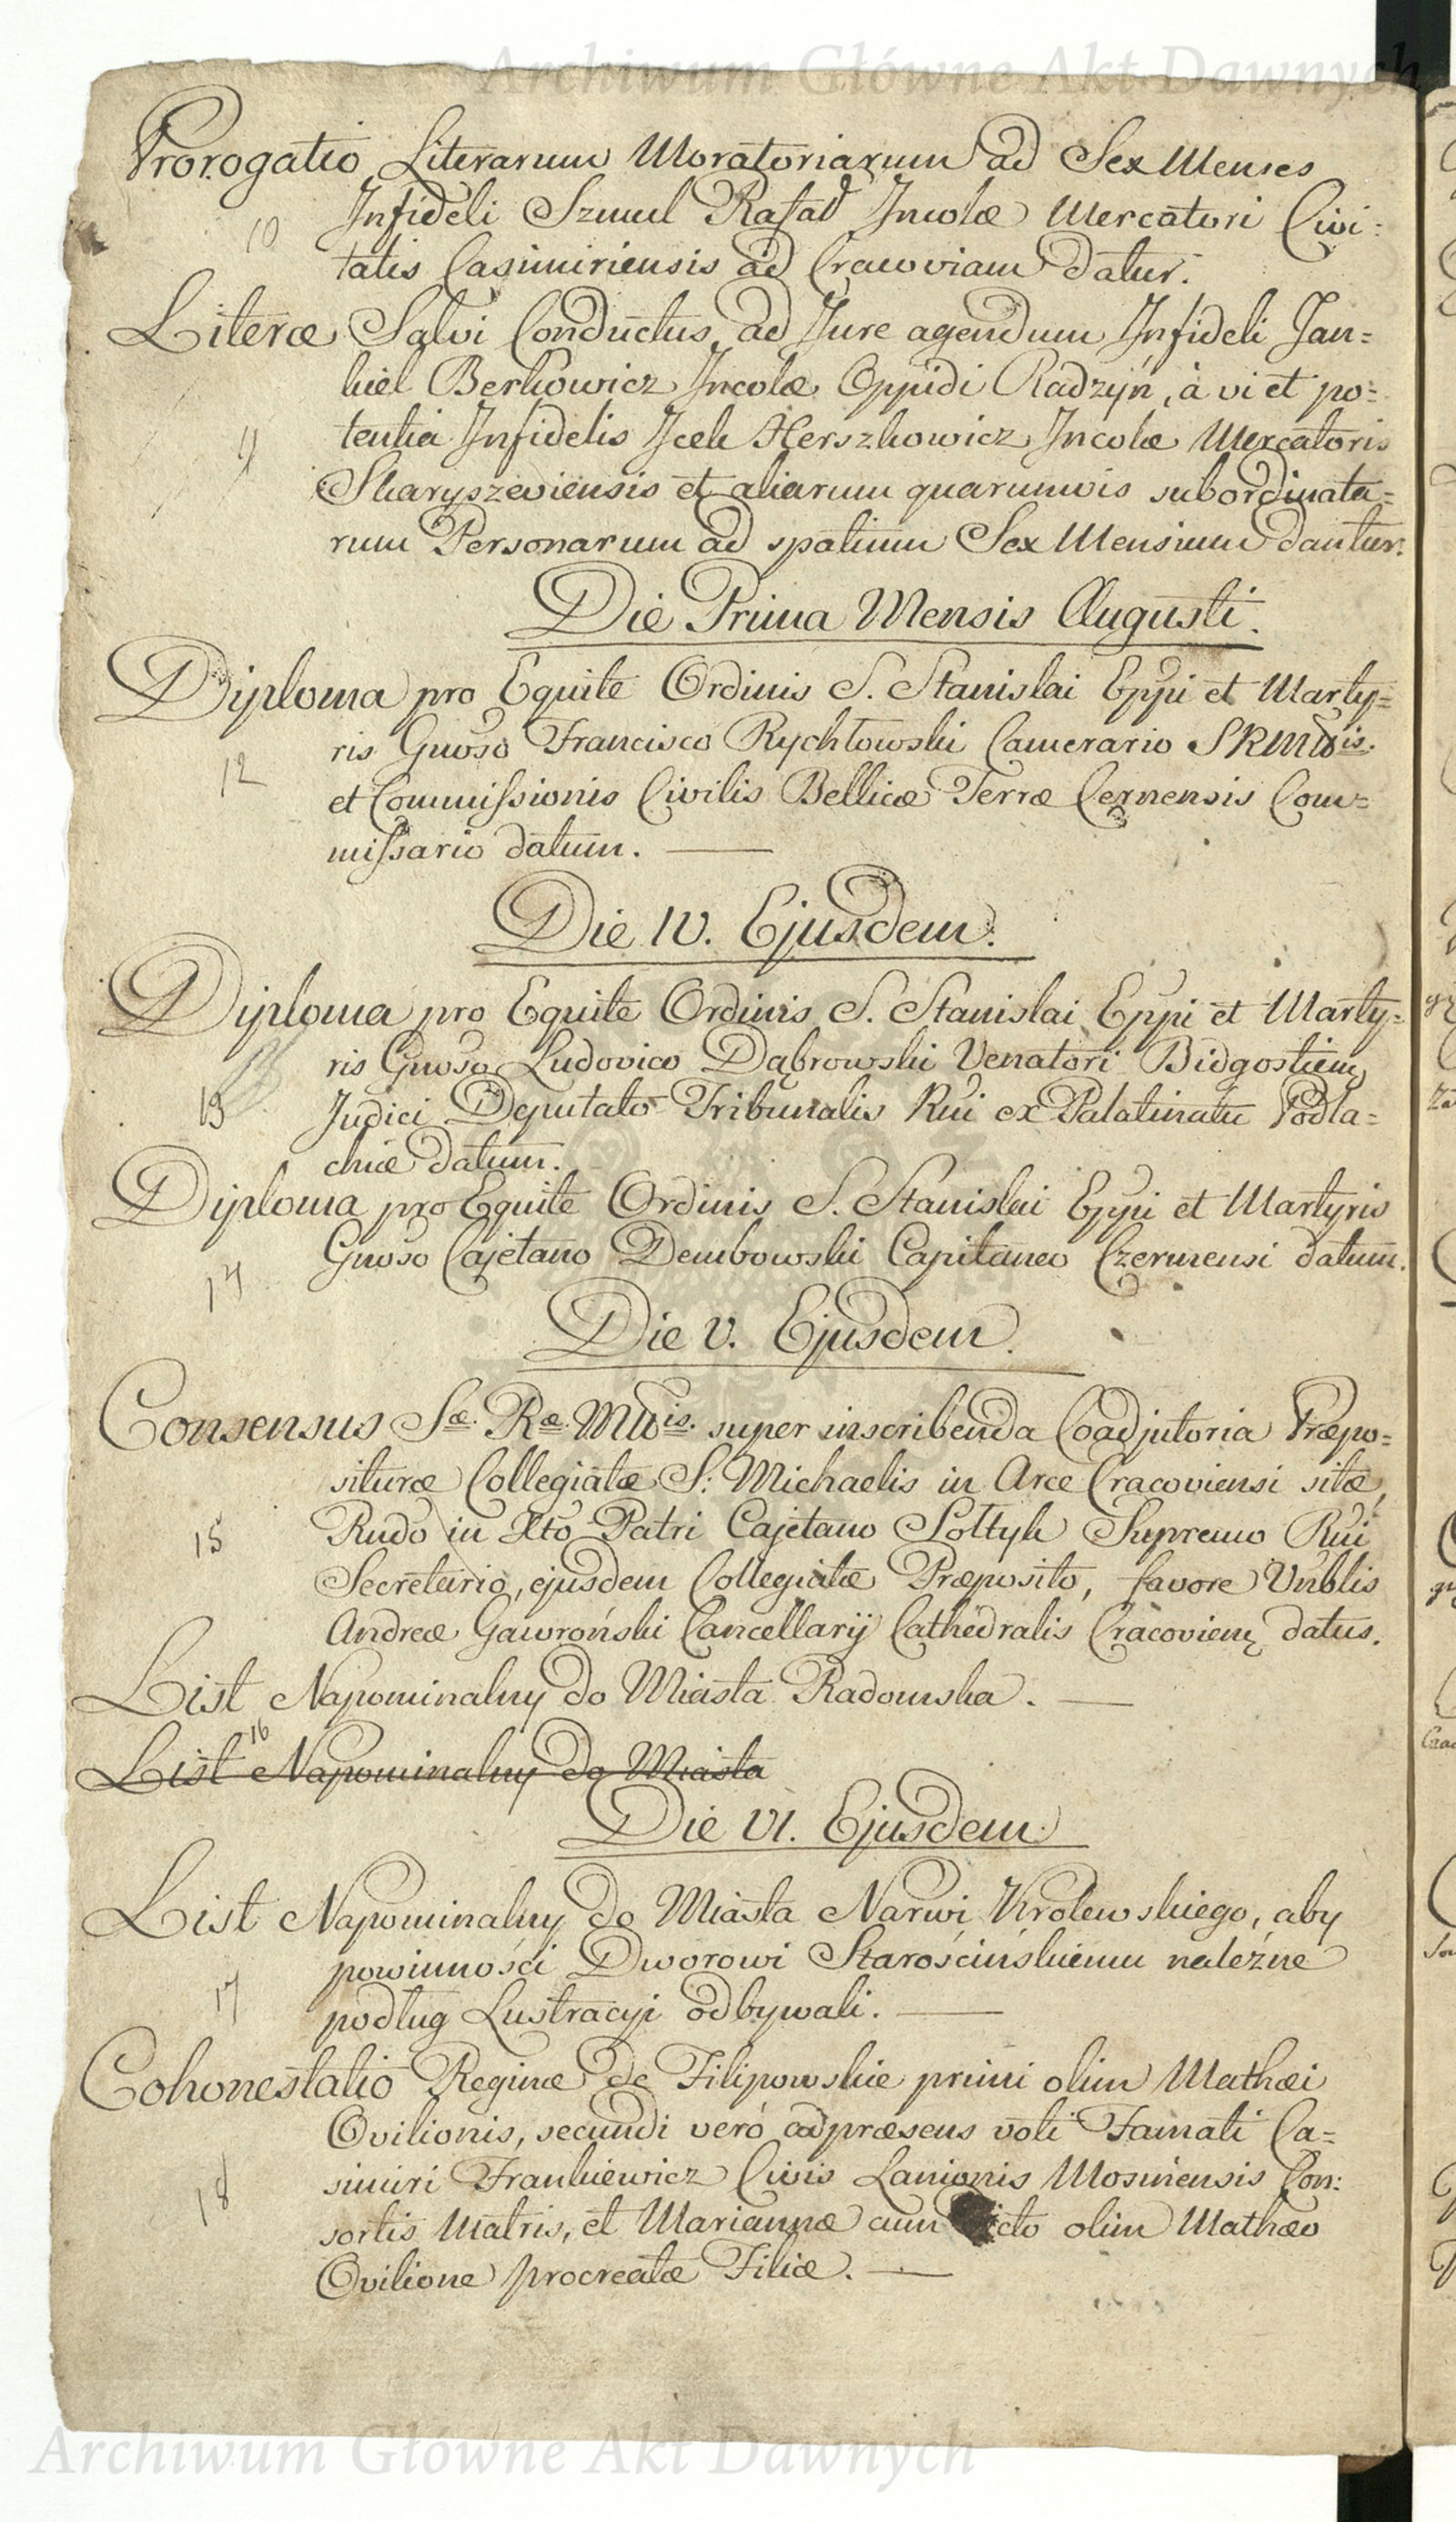 Archiwum Główne Akt Dawnych
Prorogatio Literarum Moratoriarum ad Sex Menses
10 Infideli Szmul Rafał Incolæ Mercatori Civi:
tatis Casimiriensis ad Cracoviam datur.
Literæ Salvi Conductus ad Jure agendum Infideli Jan=
kiel Berkowicz Incolæ Oppidi Radzyń, à vi et po=
11 tentia Infidelis Icek Herszkowicz Incolæ Mercatoris
Skaryszeviensis et aliarum quarumvis subordinata=
rum Personarum ad spatium Sex Mensium dantur.
Die Prima Mensis Augusti.
Diploma pro Equite Ordinis S. Stanislai Eppi et Marty=
ris Gnoso Francisco Rychłowski Camerario SRMttis.
12 et Commissionis Civilis Bellicæ Terræ Cernensis Com=
missario datum.
Die IV. Ejusdem.
Diploma pro Equite Ordinis S. Stanislai Eppi et Marty=
ris Gnoso Ludovico Dąbrowski Venatori Bidgostien
13 Judici Deputato Tribunalis Rni ex Palatinatu Podla=
chiæ datum.
Diploma pro Equite Ordinis S. Stanislai Eppi et Martyris
14 Gnoso Cajetano Dembowski Capitaneo Czermensi datum.
Die V. Ejusdem.
Consensus Sæ. Ræ. Mttis. super inscribenda Coadjutoria Præpo=
situræ Collegiatæ S: Michaelis in Arce Cracoviensi sitæ,
15 Rndo in Xto Patri Cajetano Sołtyk Supremo Rni
Secretario, ejusdem Collegiatæ Præposito, favore Vnblis
Andreæ Gawroński Cancellarij Cathedralis Cracovien datus.
List Napominalny do Miasta Radomska.
16
List Napominalny do Miasta
Die VI. Ejusdem
List Napominalny do Miasta Narwi Krolewskiego, aby
powinności Dworowi Starościńskiemu należne
17 podług Lustracyi odbywali.
Cohonestatio Reginæ de Filipowskie primi olim Mathæi
Ovilionis, secundi verò adpræsens voti Famati Ca=
18 simiri Frankiewicz Civis Lanionis Mosinensis Con:
sortis Matris, et Mariannæ cum dicto olim Mathæo
Ovilione procreatæ Filiæ.
Archiwum Główne Akt Dawnych